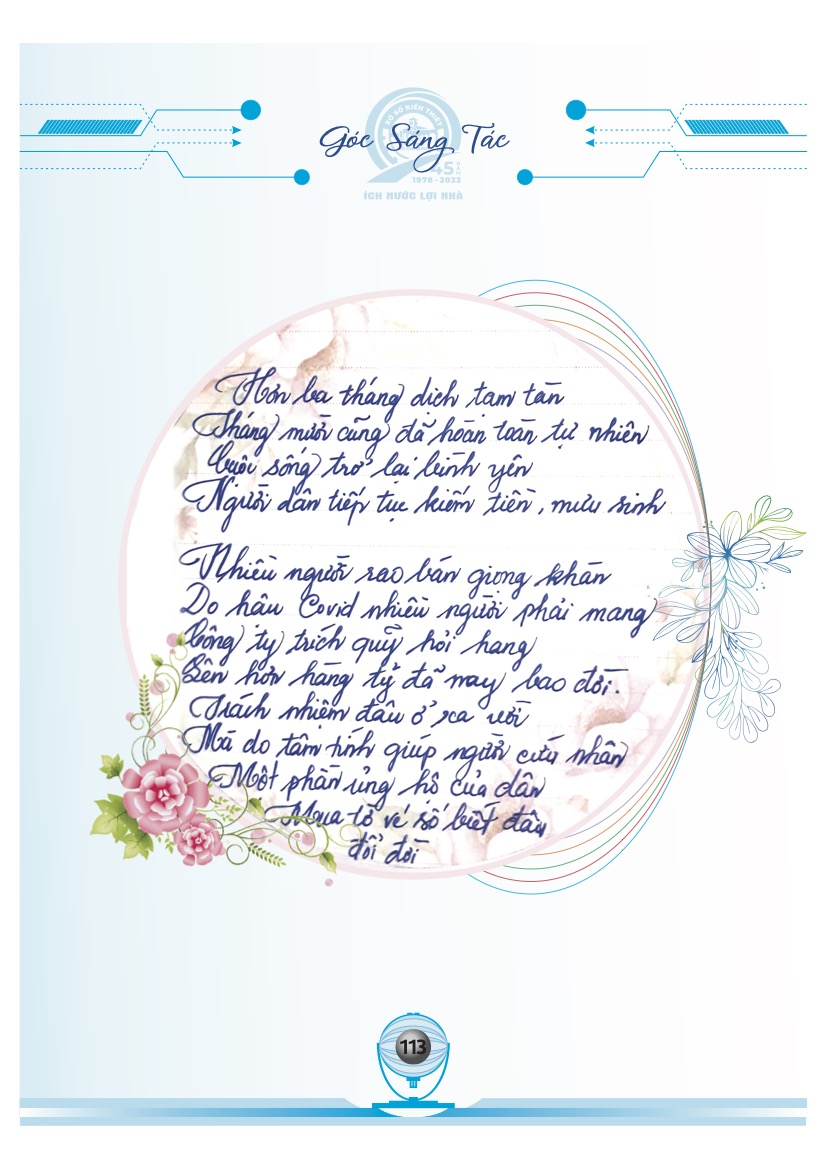 Góc Sáng Tác
XỔ SỐ KIẾN THIẾT
45 NĂM
1978 - 2023
ÍCH NƯỚC LỢI NHÀ
Hơn ba tháng dịch tạm tan
Tháng mười cũng đã hoàn toàn tự nhiên
Cuộc sống trở lại bình yên
Người dân tiếp tục kiếm tiền, mưu sinh
Nhiều người rao bán giọng khàn
Do hậu Covid nhiều người phải mang
Công ty trích quỹ hỏi hang
Lên hơn hàng tỷ đã may bao đời.
Trách nhiệm đâu ở xa vời
Mà do tâm tính giúp người cứu nhân
Một phần ủng hộ của dân
Mua tờ vé số biết đâu
đổi đời
113